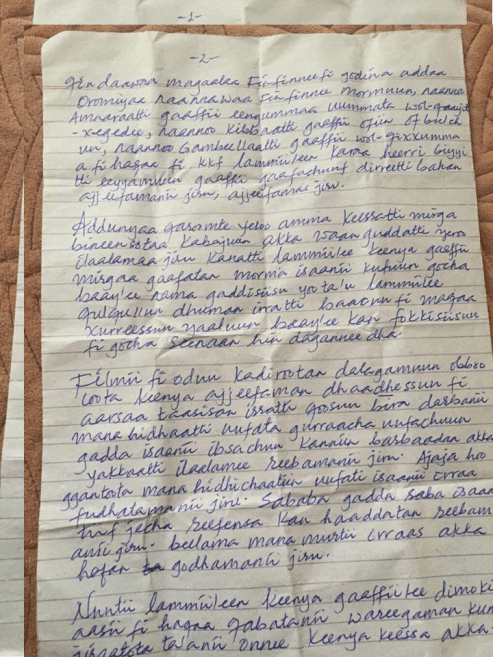 -1-
-2-
Gindaawaa magaalaa Finfinneefi godina addaa
Oromiyaa naannawaa Finfinnee mormuun, naannoo
Amaaraatti gaaffii eenyummaa uummata wol-qaayit
-xegedee, naannoo Kibbaatti gaaffii ofiin of bulch
uu, naannoo Gambeellaatti gaaffii wol-qixxumma
a fi haqaa fi kkf lammiileen karaa heerri biyyi
tti eeyyamuun gaaffii gaafachuuf dirretti bahan
ajjeefamanii jiru, ajjeefamas jiru.
Addunyaa qaroomte yeroo amma keessatti mirga
bineensotaa kabajuun akka waan guddatti yeroo
ilaalamaa jiru kanatti lammiilee keenya gaaffii
mirgaa gaafatan morma isaanii kutuun gocha
baay'ee nama gaddisiisu yoo ta'u lammiilee
qulqulluu dhuman irratti baatonni fi maqaa
xurreessuu yaaluun baay'ee kan fokkisiisuu
fi gocha seenaan hin dagannee dha.
Fiilmii fi oduu kadirootan dalagamuun obboo
loota keenya ajjeefaman dhaadhessuu fi
aarsaa taasisan irratti qoosuu bira darbanii
mana hidhaatti uufata gurraacha uufachuun
gadda isaanii ibsachuu kanniin barbaadan akka
yakkaatti ilaalamee reebamanii jiru. Ajaja hoo
ggantoota mana hidhichaatiin uufati isaanii irraa
fudhatamanii jiru. Sababa gadda saba isaan
tiif jecha reefensa kan haaddatan reebam
anii jiru. Beellama mana murtii irraas akka
hafan godhamanii jiru.
Nuutii lammiileen keenya gaaffiilee dimoki
aasii fi haqaa qabatanii wareegaman kun
jiraatota ta'anii onnee keenya keessa akka